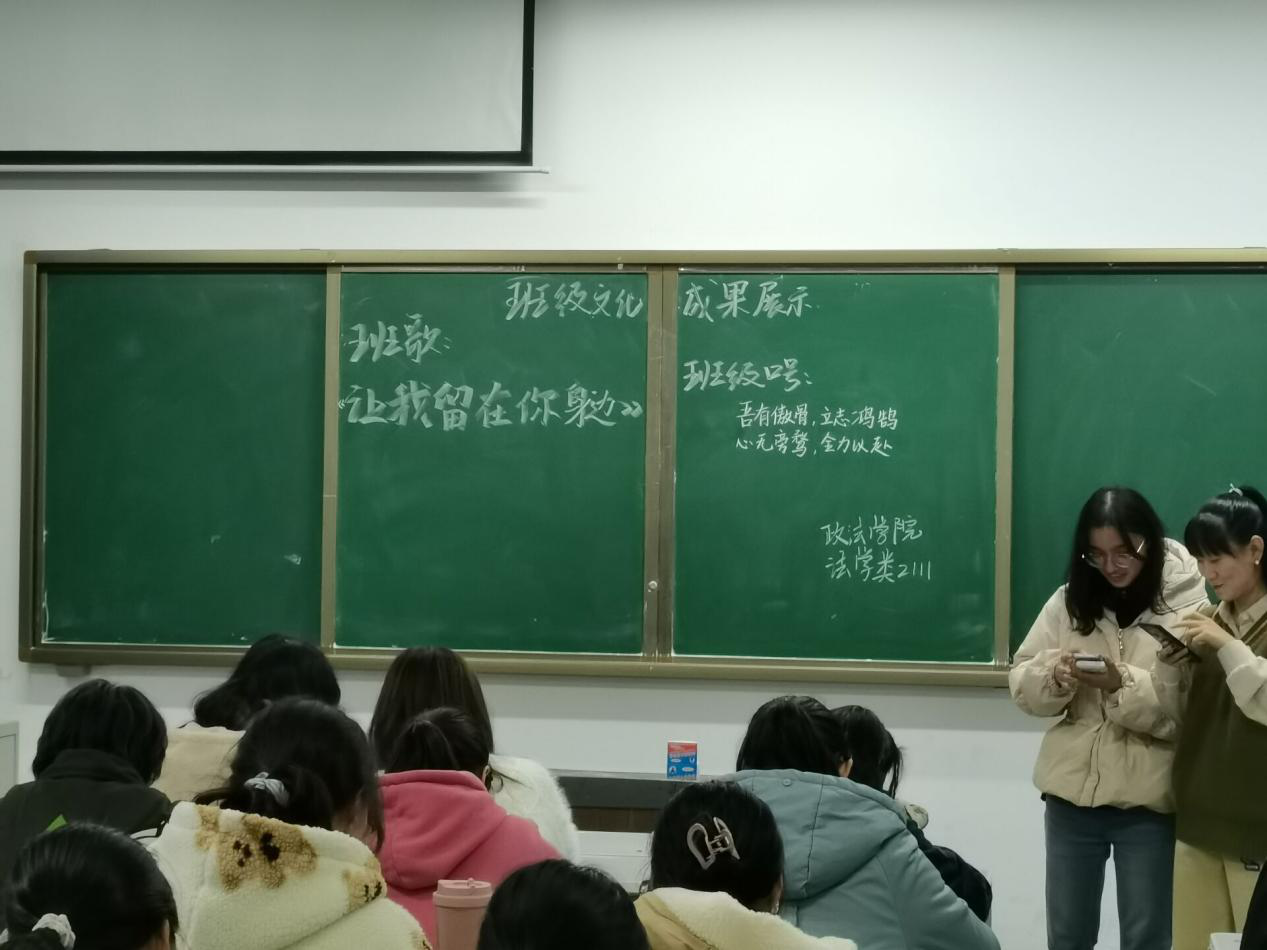 班级文化成果展示
班歌：
《让我留在你身边》
班级口号：
吾有傲骨，立志鸿鹄
心无旁骛，全力以赴
政法学院
法学类2111